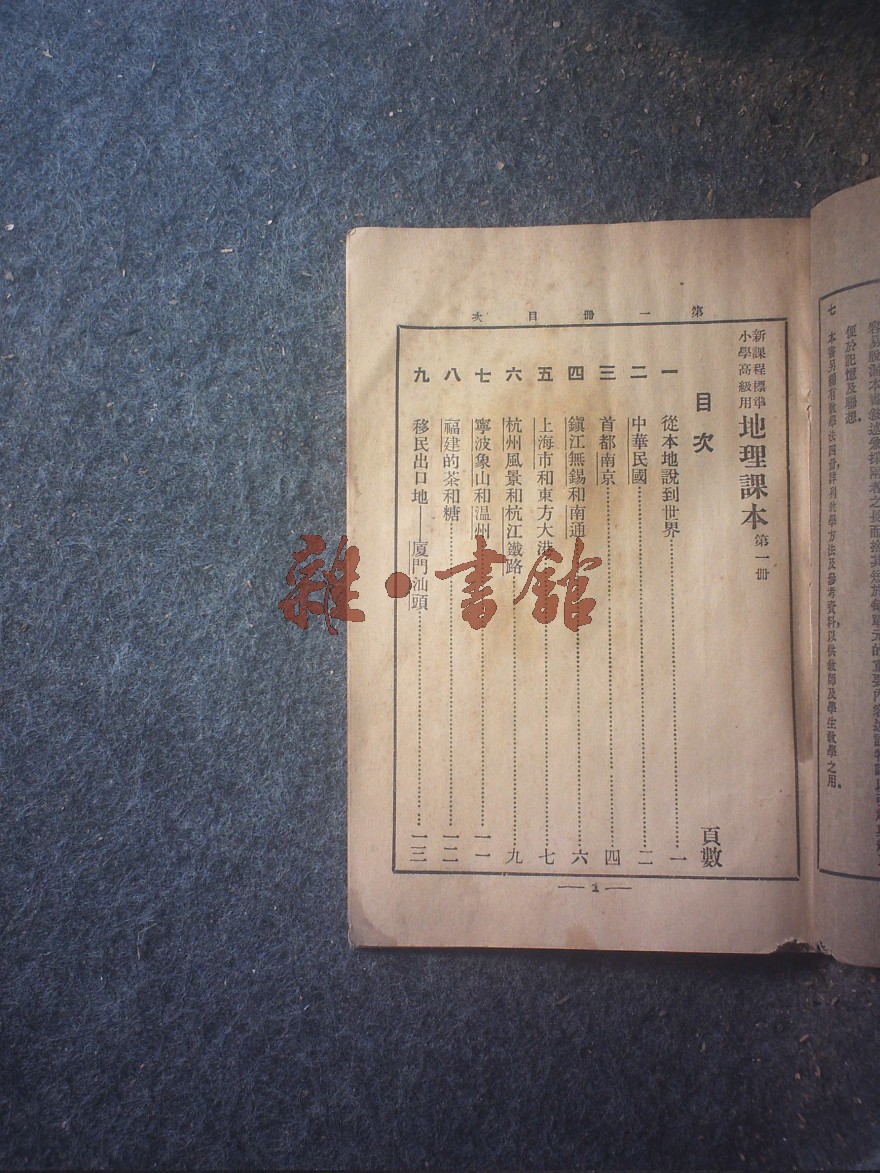 便於記憶及聯想。
七　本書另編有教學法四册，詳列教學方法及參考資料，以供教師及學生教學之用。
第一册目次
新課程標準
小學高級用
地理課本 第一册
目次
頁數
一　從本地說到世界……一
二　中華民國……二
三　首都南京……四
四　鎮江無錫和南通……六
五　上海市和東方大港……七
六　杭州風景和杭江鐵路……九
七　寧波象山和温州……一一
八　福建的茶和糖……一二
九　移民出口地——廈門汕頭……一三
1
雜·書館